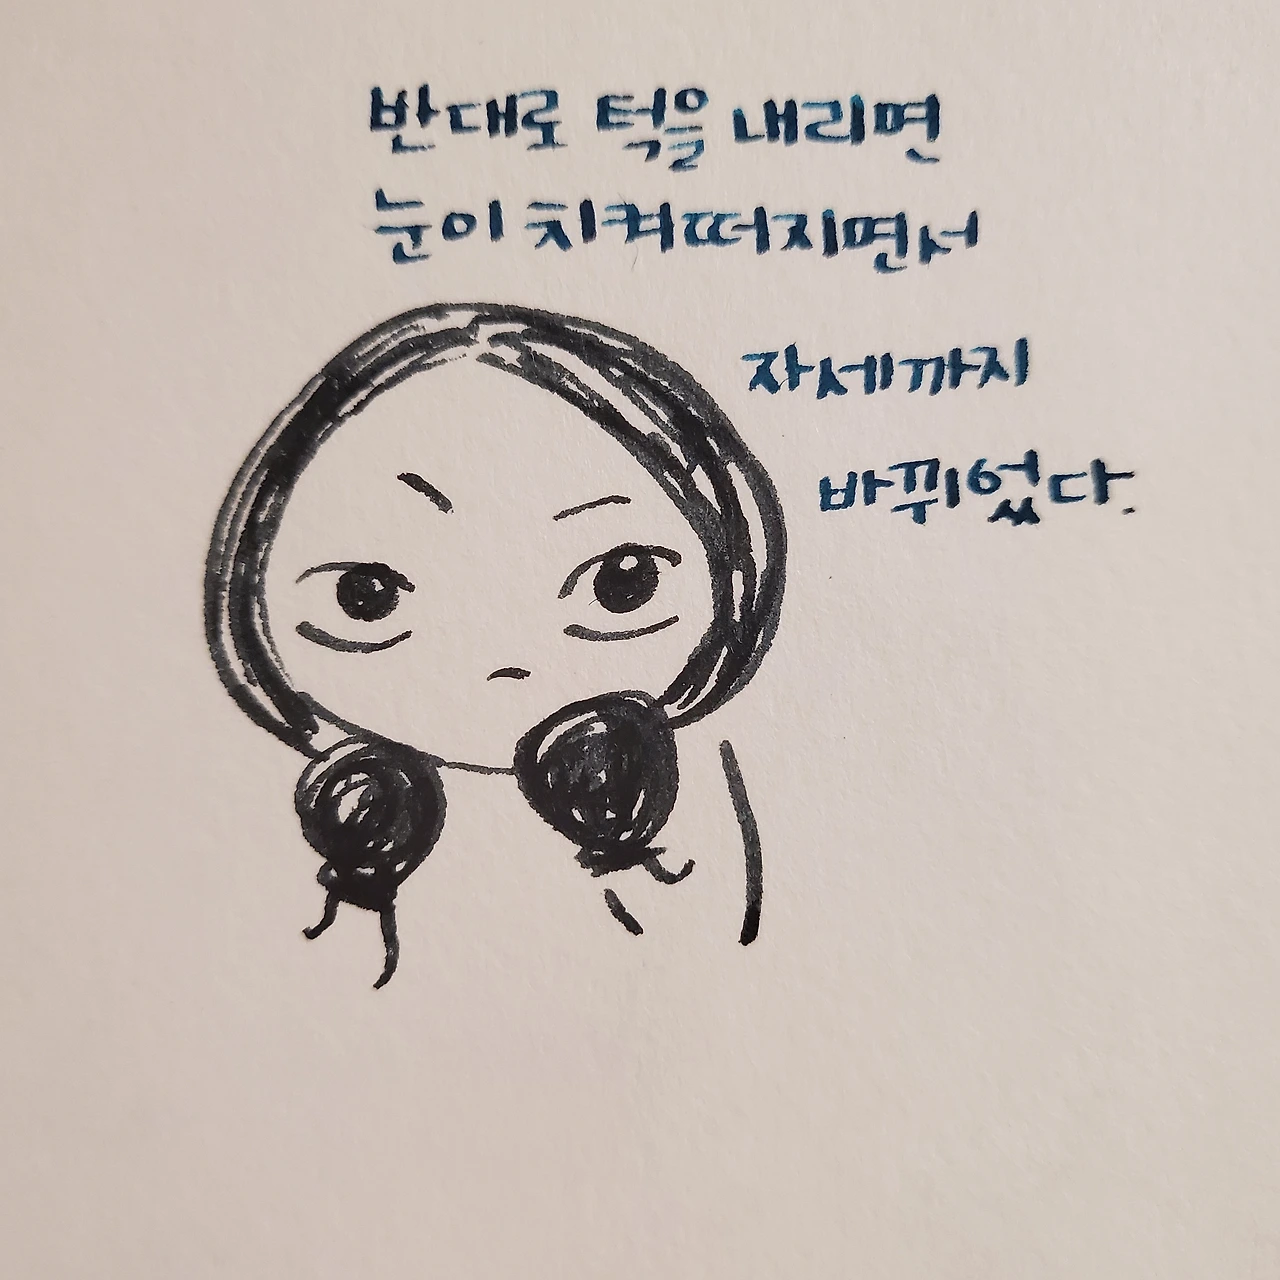 반대로 턱을 내리면
눈이 치켜떠지면서
자세까지
바뀌었다.